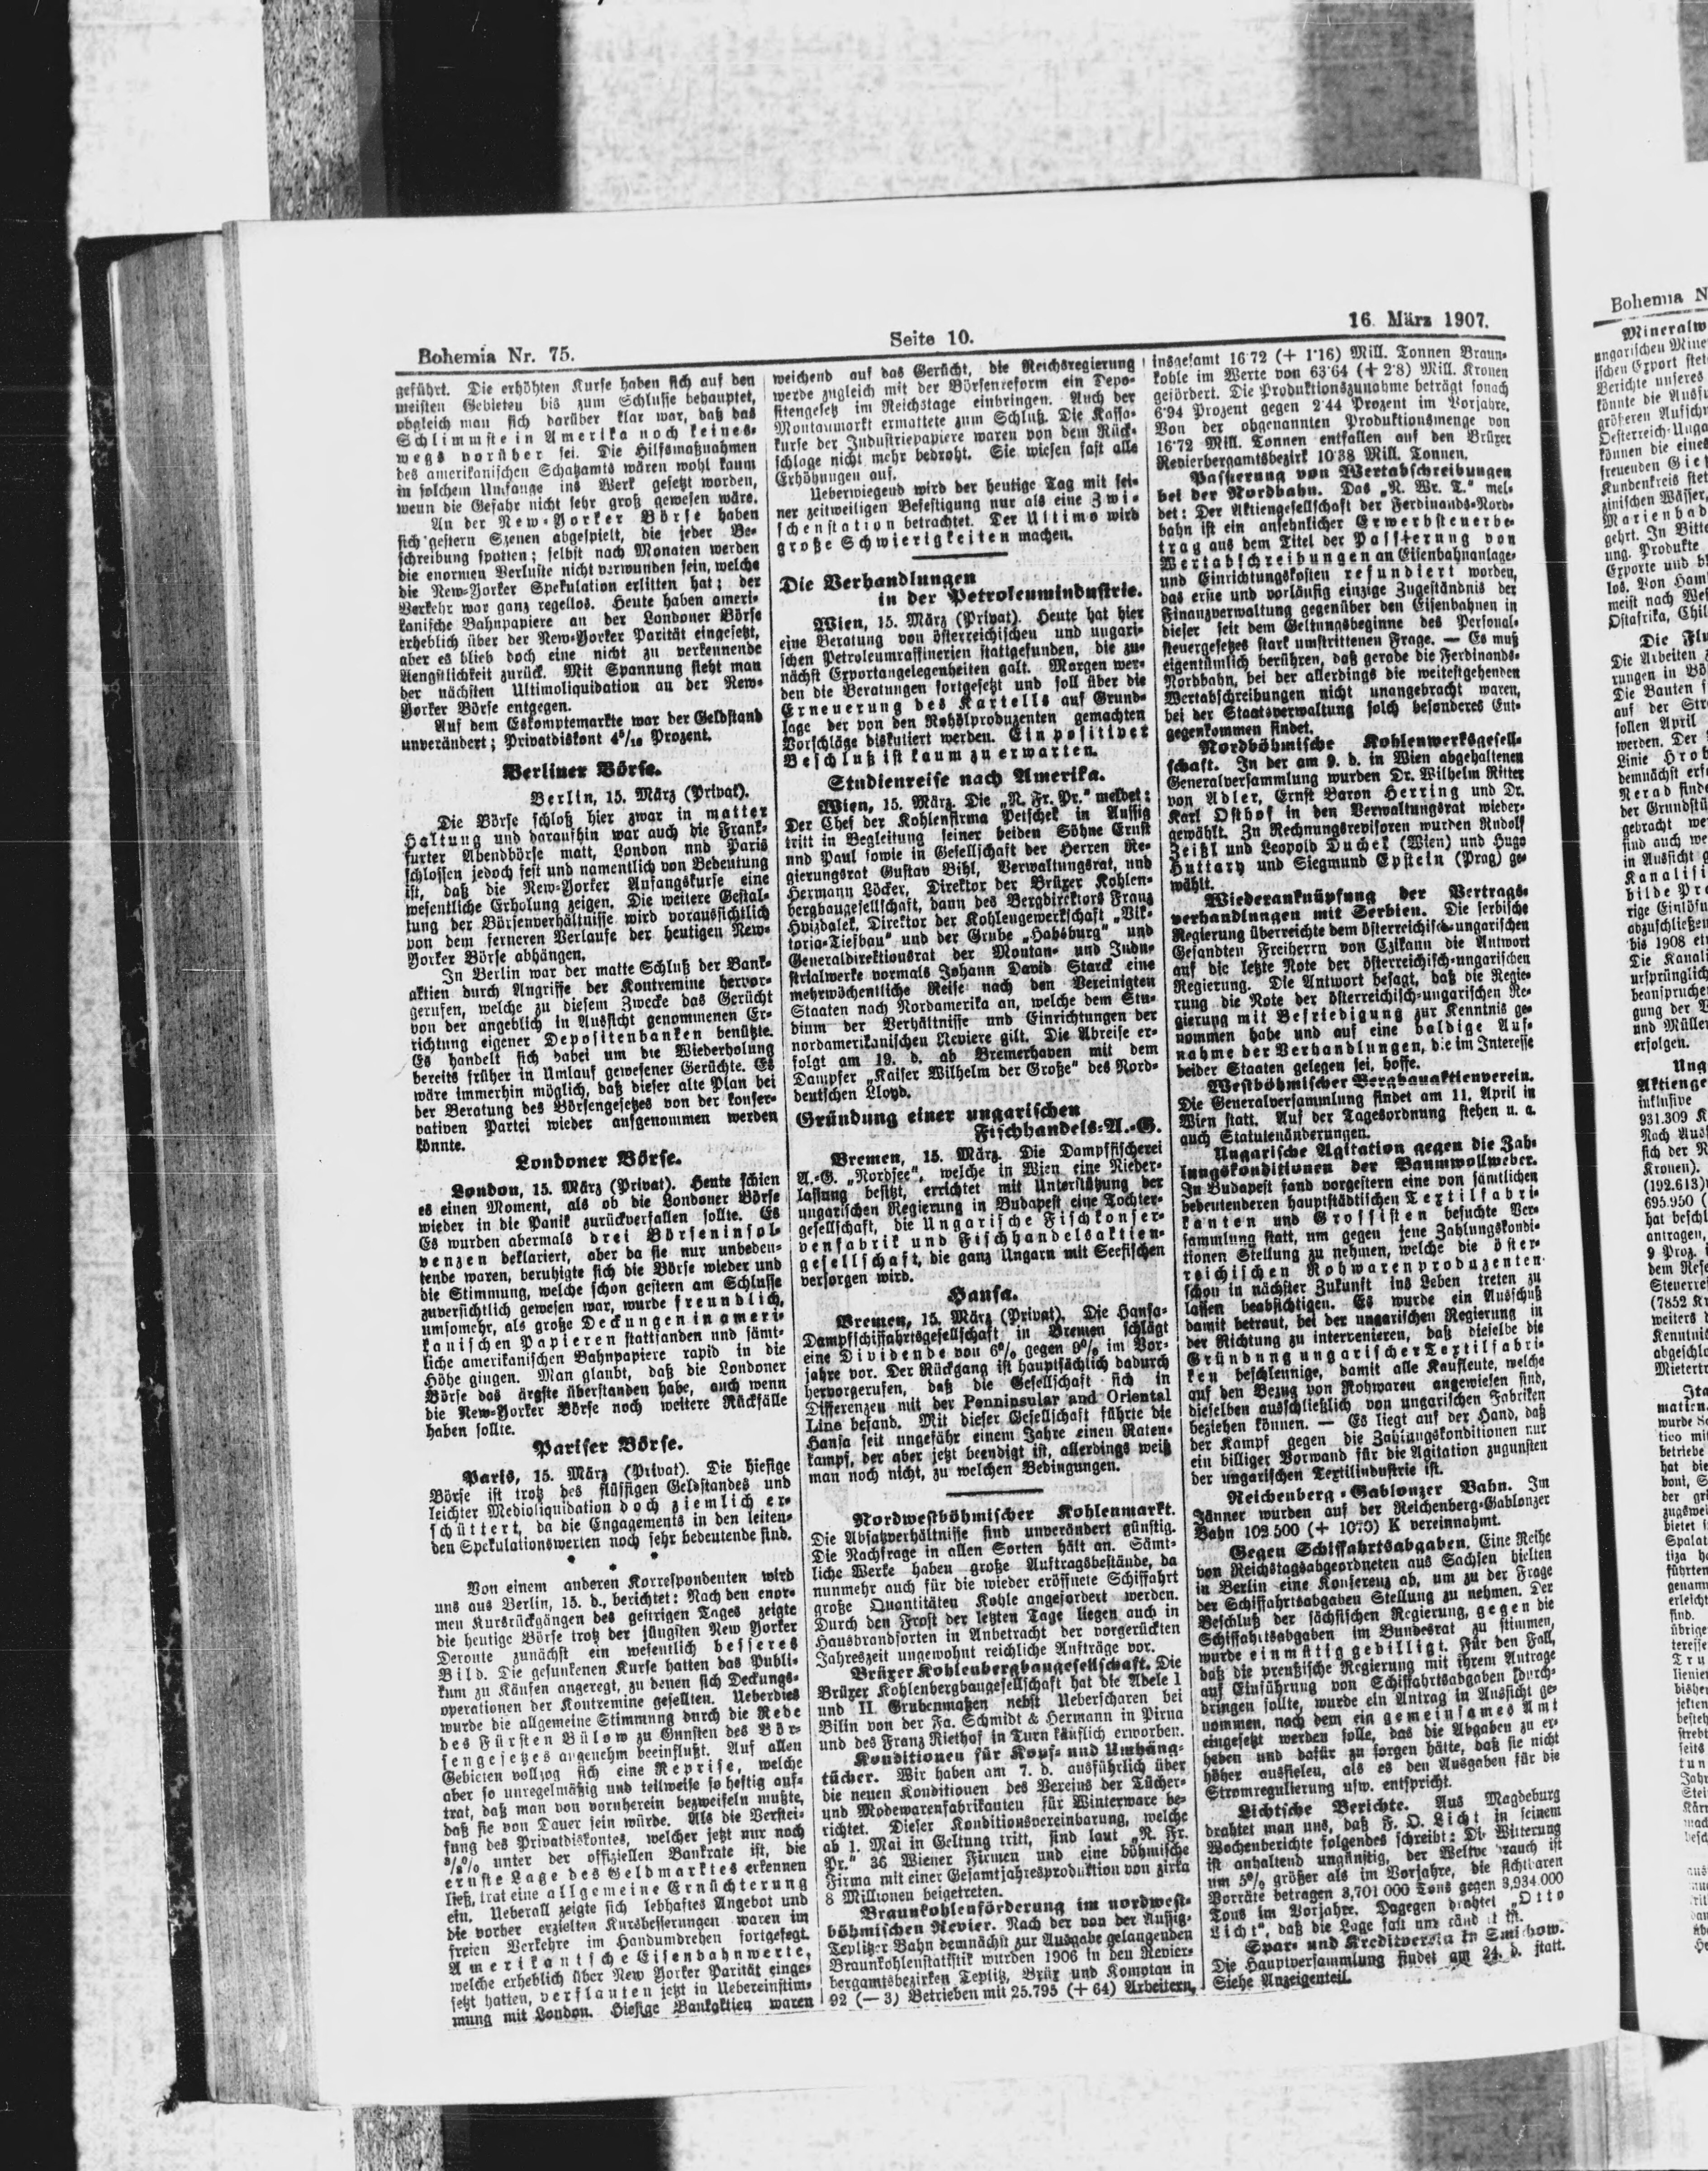 Bohemia Nr. 75.
Seite 10.
16. März 1907.
geführt. Die erhöhten Kurse haben sich auf den
meisten Gebieten bis zum Schlusse behauptet,
obgleich man sich darüber klar war, daß das
Schlimmste in Amerika noch keines-
wegs vorüber sei. Die Hilfsmaßnahmen
des amerikanischen Schatzamts wären wohl kaum
in solchem Umfange ins Werk gesetzt worden,
wenn die Gefahr nicht sehr groß gewesen wäre.
An der New-Yorker Börse haben
sich gestern Szenen abgespielt, die jeder Be-
schreibung spotten; selbst nach Monaten werden
die enormen Verluste nicht verwunden sein, welche
die New-Yorker Spekulation erlitten hat; der
Verkehr war ganz regellos. Heute haben ameri-
kanische Bahnpapiere an der Londoner Börse
erheblich über der New-Yorker Parität eingesetzt,
aber es blieb doch eine nicht zu verkennende
Aengstlichkeit zurück. Mit Spannung sieht man
der nächsten Ultimoliquidation an der New-
Yorker Börse entgegen.
Auf dem Eskomptemarkte war der Geldstand
unverändert; Privatdiskont 4⁵/₁₆ Prozent.
Berliner Börse.
Berlin, 15. März (Privat).
Die Börse schloß hier zwar in matter
Haltung und daraufhin war auch die Frank-
furter Abendbörse matt, London und Paris
schlossen jedoch fest und namentlich von Bedeutung
ist, daß die New-Yorker Anfangskurse eine
wesentliche Erholung zeigen. Die weitere Gestal-
tung der Börsenverhältnisse wird voraussichtlich
von dem ferneren Verlaufe der heutigen New-
Yorker Börse abhängen.
In Berlin war der matte Schluß der Bank-
aktien durch Angriffe der Kontremine hervor-
gerufen, welche zu diesem Zwecke das Gerücht
von der angeblich in Aussicht genommenen Er-
richtung eigener Depositenbanken benützte.
Es handelt sich dabei um die Wiederholung
bereits früher in Umlauf gewesener Gerüchte. Es
wäre immerhin möglich, daß dieser alte Plan bei
der Beratung des Börsengesetzes von der konser-
vativen Partei wieder aufgenommen werden
könnte.
Londoner Börse.
London, 15. März (Privat). Heute schien
es einen Moment, als ob die Londoner Börse
wieder in die Panik zurückverfallen sollte. Es
Es wurden abermals drei Börseninsol-
venzen deklariert, aber da sie nur unbeden-
tende waren, beruhigte sich die Börse wieder und
die Stimmung, welche schon gestern am Schlusse
zuversichtlich gewesen war, wurde freundlich,
umsomehr, als große Deckungen in ameri-
kanischen Papieren stattfanden und sämt-
liche amerikanischen Bahnpapiere rapid in die
Höhe gingen. Man glaubt, daß die Londoner
Börse das ärgste überstanden habe, auch wenn
die New-Yorker Börse noch weitere Rückfälle
haben sollte.
Pariser Börse.
Paris, 15. März (Privat). Die hiesige
Börse ist trotz des flüssigen Geldstandes und
leichter Medioliquidation doch ziemlich er-
schüttert, da die Engagements in den leiten-
den Spekulationswerten noch sehr bedeutende sind.
* * *
Von einem anderen Korrespondenten wird
uns aus Berlin, 15. d., berichtet: Nach den enor-
men Kursrückgängen des gestrigen Tages zeigte
die heutige Börse trotz der jüngsten New Yorker
Deroute zunächst ein wesentlich besseres
Bild. Die gesunkenen Kurse hatten das Publi-
kum zu Käufen angeregt, zu denen sich Deckungs-
operationen der Kontremine gesellten. Ueberdies
wurde die allgemeine Stimmung durch die Rede
des Fürsten Bülow zu Gunsten des Bör-
sengesetzes angenehm beeinflußt. Auf allen
Gebieten vollzog sich eine Reprise, welche
aber so unregelmäßig und teilweise so heftig auf-
trat, daß man von vornherein bezweifeln mußte,
daß sie von Dauer sein würde. Als die Verstei-
fung des Privatdiskontes, welcher jetzt nur noch
³/₈% unter der offiziellen Bankrate ist, die
ernste Lage des Geldmarktes erkennen
ließ, trat eine allgemeine Ernüchterung
ein. Ueberall zeigte sich lebhaftes Angebot und
die vorher erzielten Kursbesserungen waren im
freien Verkehre im Handumdrehen fortgefegt.
Amerikanische Eisenbahnwerte,
welche erheblich über New Yorker Parität einge-
setzt hatten, verflauten jetzt in Uebereinstim-
mung mit London. Hiesige Bankaktien waren
weichend auf das Gerücht, die Reichsregierung
werde zugleich mit der Börsenreform ein Depo-
sitengesetz im Reichstage einbringen. Auch der
Montanmarkt ermattete zum Schluß. Die Kassa-
kurse der Industriepapiere waren von dem Rück-
schlage nicht mehr bedroht. Sie wiesen fast alle
Erhöhungen auf.
Ueberwiegend wird der heutige Tag mit sei-
ner zeitweiligen Befestigung nur als eine Zwi-
schenstation betrachtet. Der Ultimo wird
große Schwierigkeiten machen.
Die Verhandlungen
in der Petroleumindustrie.
Wien, 15. März (Privat). Heute hat hier
eine Beratung von österreichischen und ungari-
schen Petroleumraffinerien stattgefunden, die zu-
nächst Exportangelegenheiten galt. Morgen wer-
den die Beratungen fortgesetzt und soll über die
Erneuerung des Kartells auf Grund-
lage der von den Rohölproduzenten gemachten
Vorschläge diskutiert werden. Ein positiver
Beschluß ist kaum zu erwarten.
Studienreise nach Amerika.
Wien, 15. März. Die „N. Fr. Pr.“ meldet:
Der Chef der Kohlenfirma Petschek in Aussig
tritt in Begleitung seiner beiden Söhne Ernst
und Paul sowie in Gesellschaft der Herren Re-
gierungsrat Gustav Bihl, Verwaltungsrat, und
Hermann Löcker, Direktor der Brüxer Kohlen-
bergbaugesellschaft, dann des Bergdirektors Franz
Hvizdalek, Direktor der Kohlengewerkschaft „Vik-
toria-Tiefbau“ und der Grube „Habsburg“ und
Generaldirektionsrat der Montan- und Indu-
strialwerke vormals Johann David Starck eine
mehrwöchentliche Reise nach den Vereinigten
Staaten nach Nordamerika an, welche dem Stu-
dium der Verhältnisse und Einrichtungen der
nordamerikanischen Reviere gilt. Die Abreise er-
folgt am 19. d. ab Bremerhaven mit dem
Dampfer „Kaiser Wilhelm der Große“ des Nord-
deutschen Lloyd.
Gründung einer ungarischen
Fischhandels-A.-G.
Bremen, 15. März. Die Dampffischerei
A.-G. „Nordsee“, welche in Wien eine Nieder-
lassung besitzt, errichtet mit Unterstützung der
ungarischen Regierung in Budapest eine Tochter-
gesellschaft, die Ungarische Fischkonser-
venfabrik und Fischhandelsaktien-
gesellschaft, die ganz Ungarn mit Seefischen
versorgen wird.
Hansa.
Bremen, 15. März (Privat). Die Hansa-
Dampfschiffahrtsgesellschaft in Bremen schlägt
eine Dividende von 6% gegen 9% im Vor-
jahre vor. Der Rückgang ist hauptsächlich dadurch
hervorgerufen, daß die Gesellschaft sich in
Differenzen mit der Penninsular and Oriental
Line befand. Mit dieser Gesellschaft führte die
Hansa seit ungefähr einem Jahre einen Raten-
kampf, der aber jetzt beendigt ist, allerdings weiß
man noch nicht, zu welchen Bedingungen.
Nordwestböhmischer Kohlenmarkt.
Die Absatzverhältnisse sind unverändert günstig.
Die Nachfrage in allen Sorten hält an. Sämt-
liche Werke haben große Auftragsbestände, da
nunmehr auch für die wieder eröffnete Schiffahrt
große Quantitäten Kohle angefordert werden.
Durch den Frost der letzten Tage liegen auch in
Hausbrandsorten in Anbetracht der vorgerückten
Jahreszeit ungewohnt reichliche Aufträge vor.
Brüxer Kohlenbergbaugesellschaft. Die
Brüxer Kohlenbergbaugesellschaft hat die Adele I
und II Grubenmaßen nebst Ueberscharen bei
Bilin von der Fa. Schmidt & Hermann in Pirna
und des Franz Riethof in Turn käuflich erworben.
Konditionen für Kopf- und Umhäng-
tücher. Wir haben am 7. d. ausführlich über
die neuen Konditionen des Vereins der Tücher-
und Modewarenfabrikanten für Winterware be-
richtet. Dieser Konditionsvereinbarung, welche
ab 1. Mai in Geltung tritt, sind laut „N. Fr.
Pr.“ 36 Wiener Firmen und eine böhmische
Firma mit einer Gesamtjahresproduktion von zirka
8 Millionen beigetreten.
Braunkohlenförderung im nordwest-
böhmischen Revier. Nach der von der Aussig-
Teplitzer Bahn demnächst zur Ausgabe gelangenden
Braunkohlenstatistik wurden 1906 in den Revier-
bergamtsbezirken Teplitz, Brüx und Komotau in
92 (— 3) Betrieben mit 25.795 (+ 64) Arbeitern,
insgesamt 16·72 (+ 1·16) Mill. Tonnen Braun-
kohle im Werte von 63·64 (+ 2·8) Mill. Kronen
gefördert. Die Produktionszunahme beträgt sonach
6·94 Prozent gegen 2·44 Prozent im Vorjahre.
Von der obgenannten Produktionsmenge von
16·72 Mill. Tonnen entfallen auf den Brüxer
Revierbergamtsbezirk 10·38 Mill. Tonnen.
Passierung von Wertabschreibungen
bei der Nordbahn. Das „N. Wr. T.“ mel-
det: Der Aktiengesellschaft der Ferdinands-Nord-
bahn ist ein ansehnlicher Erwerbsteuerbe-
trag aus dem Titel der Passierung von
Wertabschreibungen an Eisenbahnanlage-
und Einrichtungskosten refundiert worden,
das erste und vorläufig einzige Zugeständnis der
Finanzverwaltung gegenüber den Eisenbahnen in
dieser seit dem Geltungsbeginne des Personal-
steuergesetzes stark umstrittenen Frage. — Es muß
eigentümlich berühren, daß gerade die Ferdinands-
Nordbahn, bei der allerdings die weitestgehenden
Wertabschreibungen nicht unangebracht waren,
bei der Staatsverwaltung solch besonderes Ent-
gegenkommen findet.
Nordböhmische Kohlenwerksgesell-
schaft. In der am 9. d. in Wien abgehaltenen
Generalversammlung wurden Dr. Wilhelm Ritter
von Adler, Ernst Baron Herring und Dr.
Karl Osthof in den Verwaltungsrat wieder-
gewählt. Zu Rechnungsrevisoren wurden Rudolf
Zeißl und Leopold Duchek (Wien) und Hugo
Huttary und Siegmund Epstein (Prag) ge-
wählt.
Wiederanknüpfung der Vertrags-
verhandlungen mit Serbien. Die serbische
Regierung überreichte dem österreichisch-ungarischen
Gesandten Freiherrn von Czikann die Antwort
auf die letzte Note der österreichisch-ungarischen
Regierung. Die Antwort besagt, daß die Regie-
rung die Note der österreichisch-ungarischen Re-
gierung mit Befriedigung zur Kenntnis ge-
nommen habe und auf eine baldige Auf-
nahme der Verhandlungen, die im Interesse
beider Staaten gelegen sei, hoffe.
Westböhmischer Bergbauaktienverein.
Die Generalversammlung findet am 11. April in
Wien statt. Auf der Tagesordnung stehen u. a.
auch Statutenänderungen.
Ungarische Agitation gegen die Zah-
lungskonditionen der Baumwollweber.
In Budapest fand vorgestern eine von sämtlichen
bedeutenderen hauptstädtischen Textilfabri-
kanten und Grossisten besuchte Ver-
sammlung statt, um gegen jene Zahlungskondi-
tionen Stellung zu nehmen, welche die öster-
reichischen Rohwarenproduzenten
schon in nächster Zukunft ins Leben treten zu
lassen beabsichtigen. Es wurde ein Ausschuß
damit betraut, bei der ungarischen Regierung in
der Richtung zu intervenieren, daß dieselbe die
Gründung ungarischer Textilfabri-
ken beschleunige, damit alle Kaufleute, welche
auf den Bezug von Rohwaren angewiesen sind,
dieselben ausschließlich von ungarischen Fabriken
beziehen können. — Es liegt auf der Hand, daß
der Kampf gegen die Zahlungskonditionen nur
ein billiger Vorwand für die Agitation zugunsten
der ungarischen Textilindustrie ist.
Reichenberg-Gablonzer Bahn. Im
Jänner wurden auf der Reichenberg-Gablonzer
Bahn 102.500 (+ 1070) K vereinnahmt.
Gegen Schiffahrtsabgaben. Eine Reihe
von Reichstagsabgeordneten aus Sachsen hielten
in Berlin eine Konferenz ab, um zu der Frage
der Schiffahrtsabgaben Stellung zu nehmen. Der
Beschluß der sächsischen Regierung, gegen die
Schiffahrtsabgaben im Bundesrat zu stimmen,
wurde einmütig gebilligt. Für den Fall,
daß die preußische Regierung mit ihrem Antrage
auf Einführung von Schiffahrtsabgaben durch-
dringen sollte, wurde ein Antrag in Aussicht ge-
nommen, nach dem ein gemeinsames Amt
eingesetzt werden solle, das die Abgaben zu er-
heben und dafür zu sorgen hätte, daß sie nicht
höher ausfielen, als es den Ausgaben für die
Stromregulierung usw. entspricht.
Lichtsche Berichte. Aus Magdeburg
drahtet man uns, daß F. O. Licht in seinem
Wochenberichte folgendes schreibt: Die Witterung
ist anhaltend ungünstig, der rauch ist
um 5% größer als im Vorjahre, die sichtbaren
Vorräte betragen 3,701.000 Tons gegen 3,934.000
Tons im Vorjahre. Dagegen drahtet „Otto
Licht“, daß die Lage fast ist.
Spar- und Kreditverein in Smichow.
Die Hauptversammlung findet am 24. d. statt.
Siehe Anzeigenteil.
Bohemia N
Mineralw
ungarischen Mine
ischen Export stet
Berichte unseres
könnte die Ausfu
größeren Aufschw
Oesterreich-Unga
können die eines
freuenden Gie
Kundenkreis stet
zinischen Wässer,
Marienbad
gehrt. In Bitte
ung. Produkte
Exporte und b
los. Von Ham
meist nach We
Ostafrika, Chil
Die Flu
Die Arbeiten z
rungen in Bö
Die Bauten s
auf der Str
sollen April
werden. Der
Linie Hrob
demnächst erf
Nerad finde
der Grundstü
gebracht we
find auch we
in Aussicht g
Kanalisi
bilde Pr
rige Einlösu
abzuschließen
bis 1908 et
Die Kanali
ursprünglich
beansprucht
gung der V
und Mülle
erfolgen.
Ung
Aktienge
inklusive
931.309 K
Nach Aus
sich der R
Kronen).
(192.613)
695.950 (
hat beschl
antragen,
9 Proz.
dem Rese
Steuerre
(7852 Kr
weiters
Kenntnis
abgeschlo
Mietertr